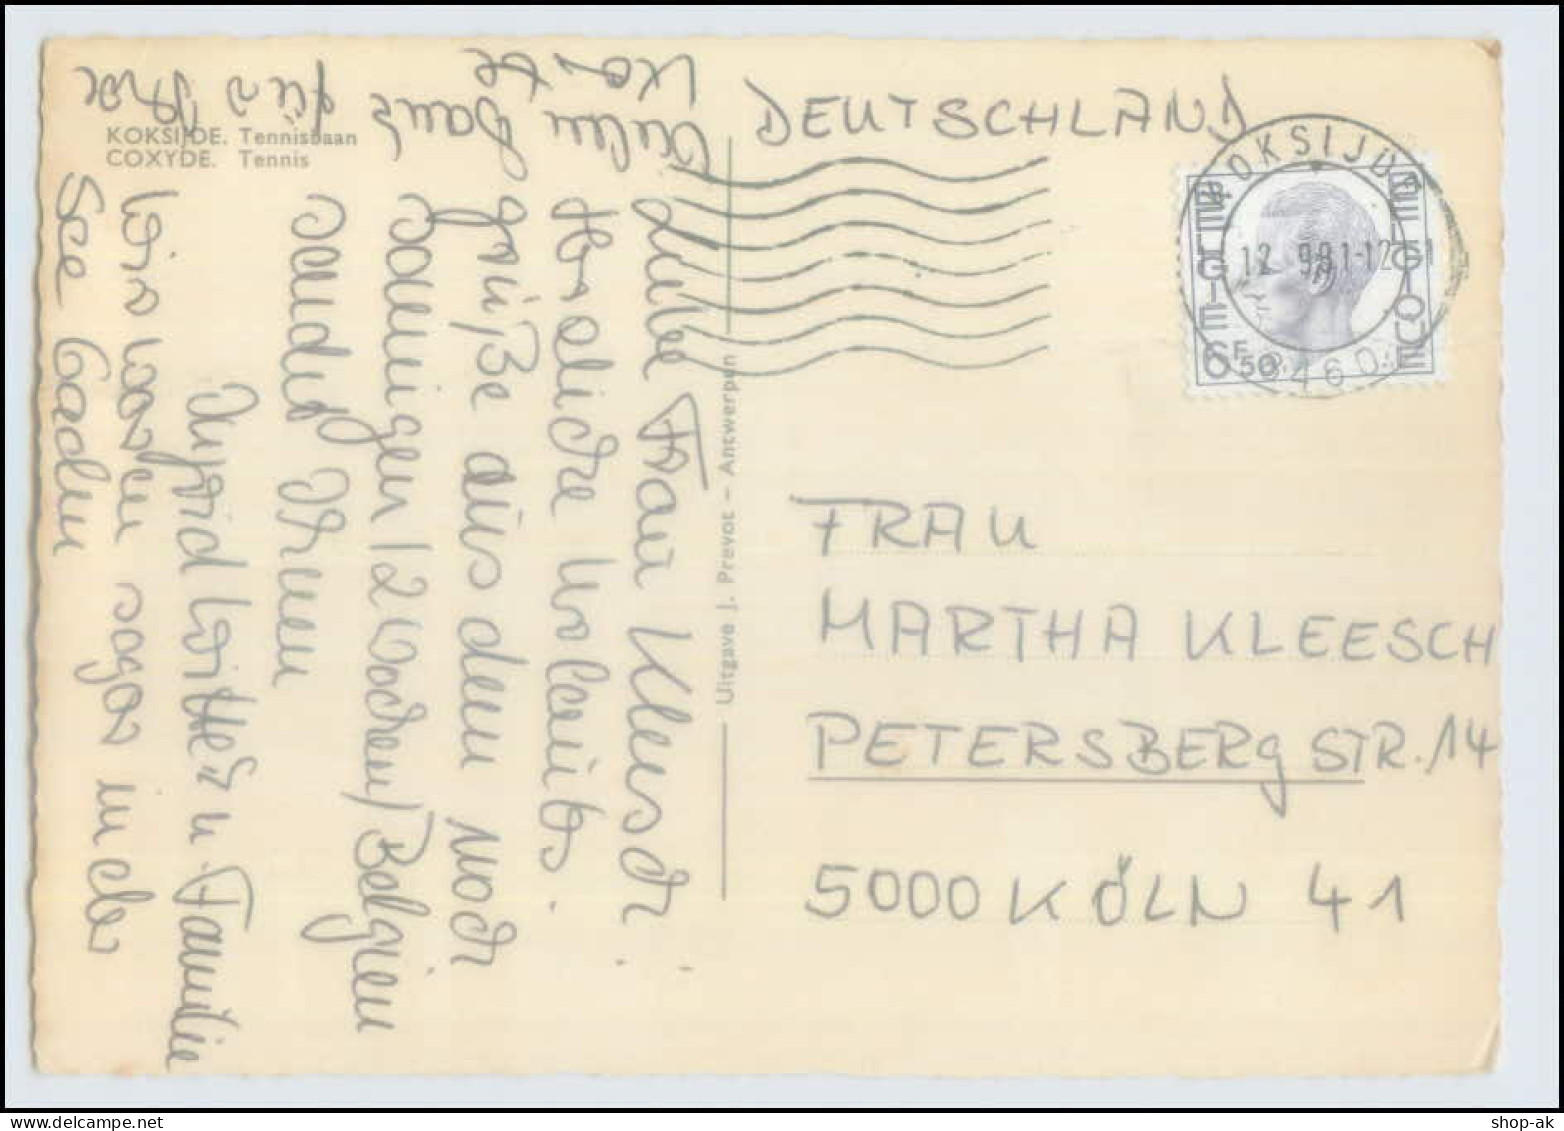 KOKSIJDE. Tennisbaan
COXYDE. Tennis
DEUTSCHLAND
KOKSIJDE
12 -9 81-12
8460
BELGIE
BELGIQUE
6F50
Uitgave J. Prevot - Antwerpen
FRAU
MARTHA KLEESCH
PETERSBERG STR. 14
5000 KÖLN 41
Liebe Frau Kleesch
Herzliche Urlaubs
grüße aus dem noch
sonnigen (2 Wochen) Belgien
sendet Ihnen
Witter u. Familie
Wir waren sogar in der
See baden
Vielen Dank für Ihre
Karte
shop-ak